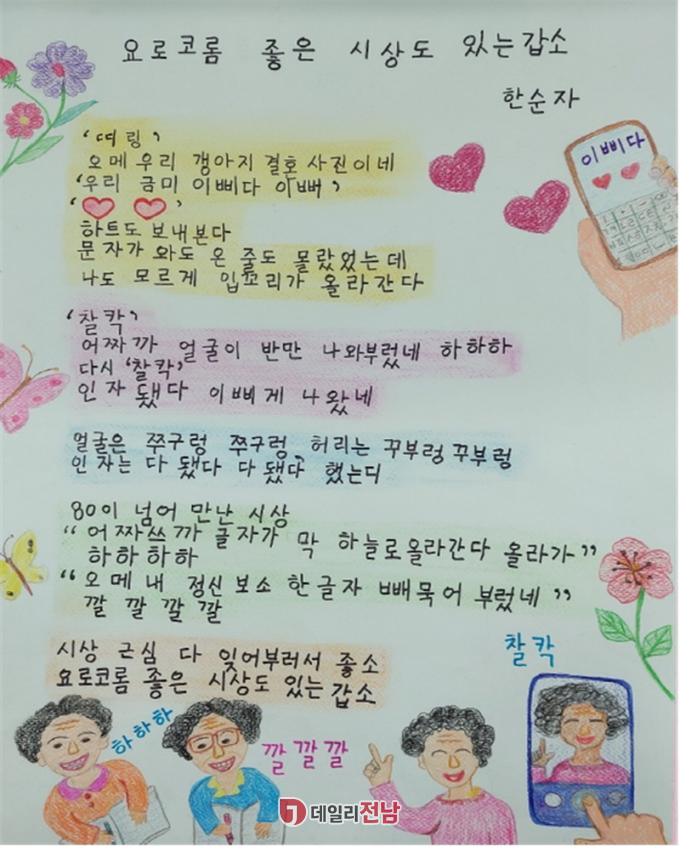 요로코롬 좋은 시상도 있는갑소
한순자
'띠링'
오메 우리 갱아지 결혼사진이네
'우리 금미 이삐다 이뻐'
'♥ ♥'
하트도 보내본다
문자가 와도 온 줄도 몰랐었는데
나도 모르게 입꼬리가 올라간다
이삐다
'찰칵'
어짜까 얼굴이 반만 나와부렀네 하하하
다시 '찰칵'
인자 됐다 이삐게 나왔네
얼굴은 쭈구렁 쭈구렁, 허리는 꾸부렁 꾸부렁
인자는 다 됐다 다 됐다 했는디
80이 넘어 만난 시상
"어짜쓰까 글자가 막 하늘로올라간다 올라가"
하하하하
"오메 내 정신보소 한글자 빼묵어 부렀네"
깔 깔 깔 깔
시상 근심 다 잊어부러서 좋소
요로코롬 좋은 시상도 있는갑소
찰칵
하하하
깔깔깔
데일리전남